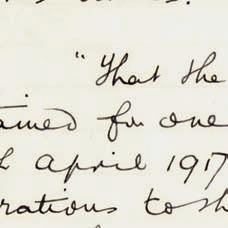 "That the
ained for one
h April 1917
rations to sh